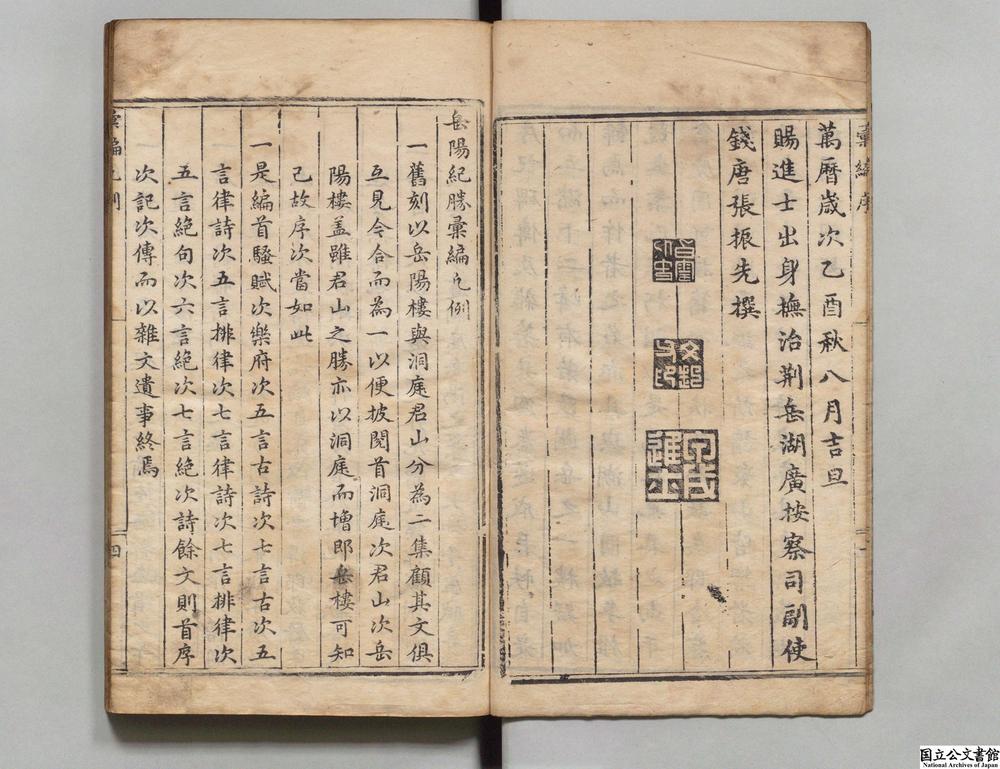 萬曆歲次乙酉秋八月吉旦
賜進士出身撫治荆岳湖廣按察司副使
錢唐張振先撰
岳陽紀勝彙編凡例
一舊刻以岳陽樓與洞庭君山分為二集顧其文俱
互見今合而為一以便披閱首洞庭次君山次岳
陽樓盖雖君山之勝亦以洞庭而增郎岳樓可知
已故序次當如此
一是編首騷賦次樂府次五言古詩次七言古次五
言律詩次五言排律次七言律詩次七言排律次
五言絕句次六言絕次七言絕次詩餘文則首序
次記次傳而以雜文遺事終焉
四
国立公文書館
National Archives of Japan